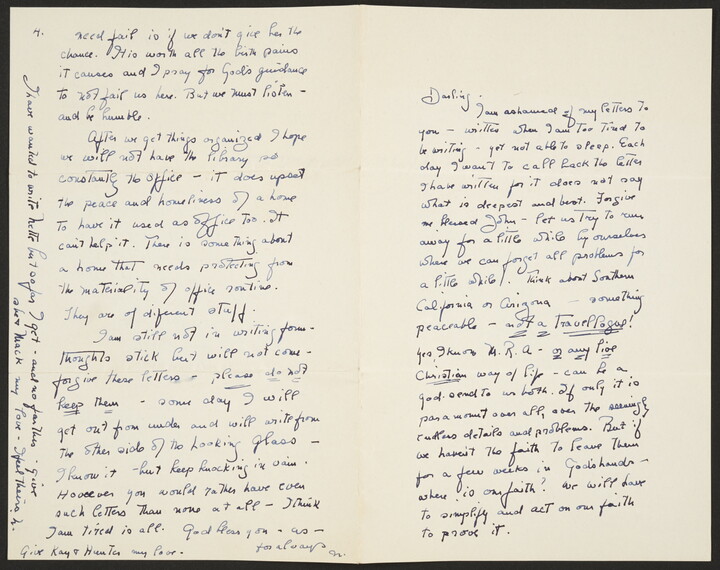 Darling.
I am ashamed of my letters to
you – written when I am too tired to
be writing – yet not able to sleep. Each
day I want to call back the letter
I have written for it does not say
what is deepest and best. Forgive
me, blessed John – let us try to run
away for a little while by ourselves
where we can forget all problems for
a little while! Think about Southern
California or Arizona – something
peaceable – not a Travellogue!
Yes, I know M.R.A – or any live
Christian way of life – can be a
god-send to us both. If only it is
paramount over all, over the seemingly
endless details and problems. But if
we haven't the faith to leave them
for a few weeks in God's hands –
where is our faith? We will have
to simplify and act on our faith
to prove it.
4.
need fail is if we don't give her the
chance. It is worth all the birth pains
it causes and I pray for God's guidance
to not fail us here. But we must listen –
and be humble.
After we get things organized I hope
we will not have the library so
constantly the office – it does upset
the peace and homeliness of a home
to have it used as office too. It
can't help it. There is something about
a home that needs protecting from
the materiality of office routine.
They are of different stuff.
I am still not in writing form –
thoughts stick but will not come –
forgive these letters – please do not
keep them – some day I will
get out from under and will write from
the other side of the Looking Glass –
I know it – but keep knocking in vain.
However you would rather have even
such letters than none at all – I think
I am tired is all. God bless you – as –
for always
N.
Give Kay & Hunter my love.
I have wanted to write Nette but so far I get – and no farther. Give
Mack my love – & feel theirs. N.